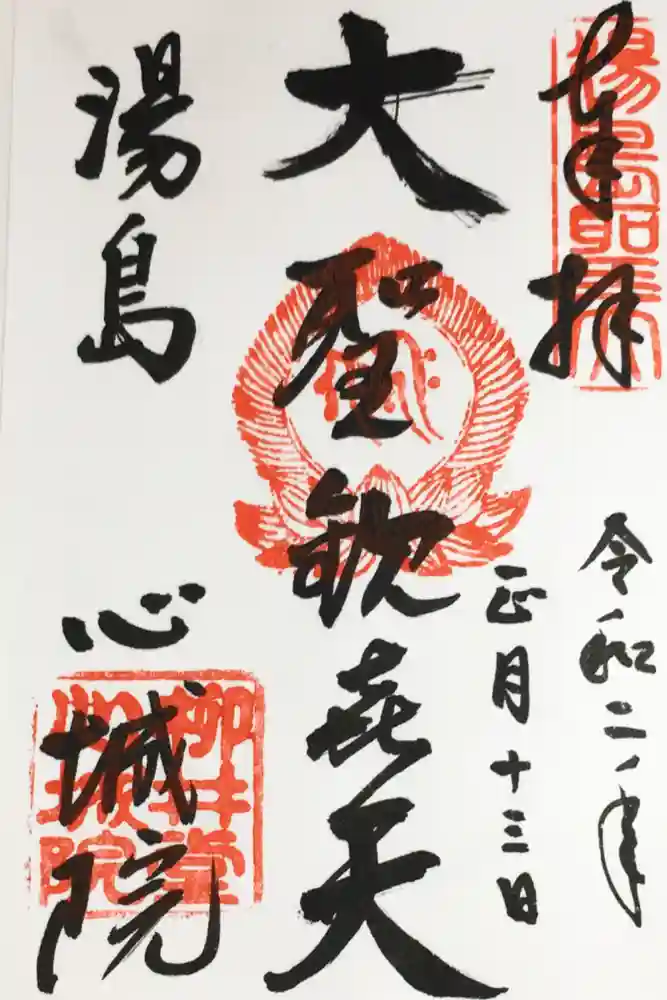 奉拝
湯島聖天
令和二年
正月十三日
大聖歓喜天
湯島
心城院
柳井堂
心城院